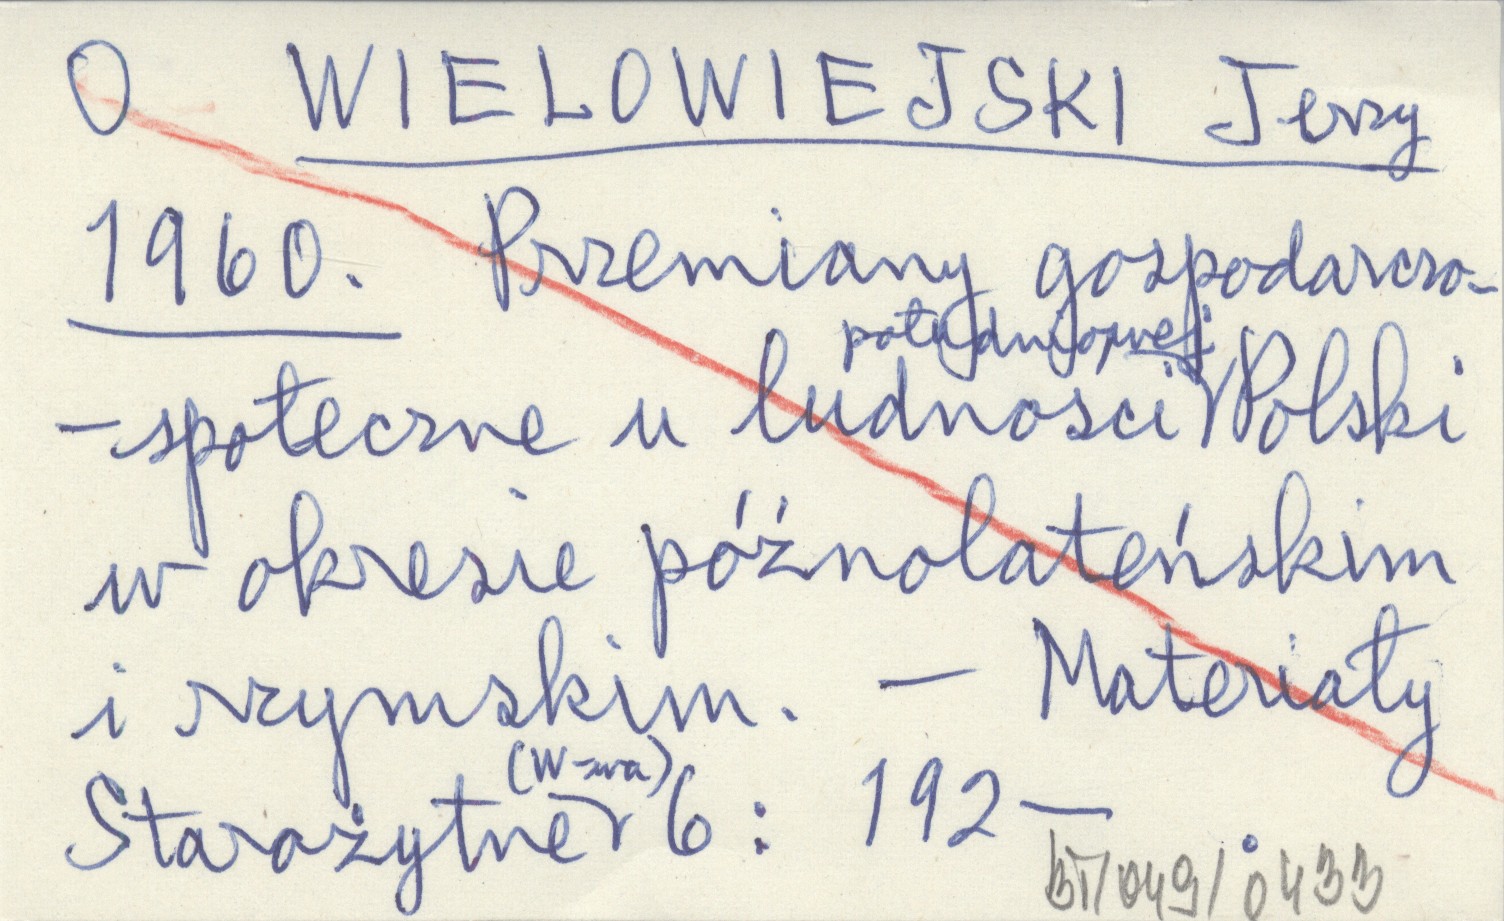 O WIELOWIEJSKI Jerzy
1960. Przemiany gospodarczo-
południowej
-społeczne u ludności Polski
w okresie późnolateńskim
i rzymskim. — Materiały
(W-wa)
Starożytne 6 : 192—.
BT/049/0433